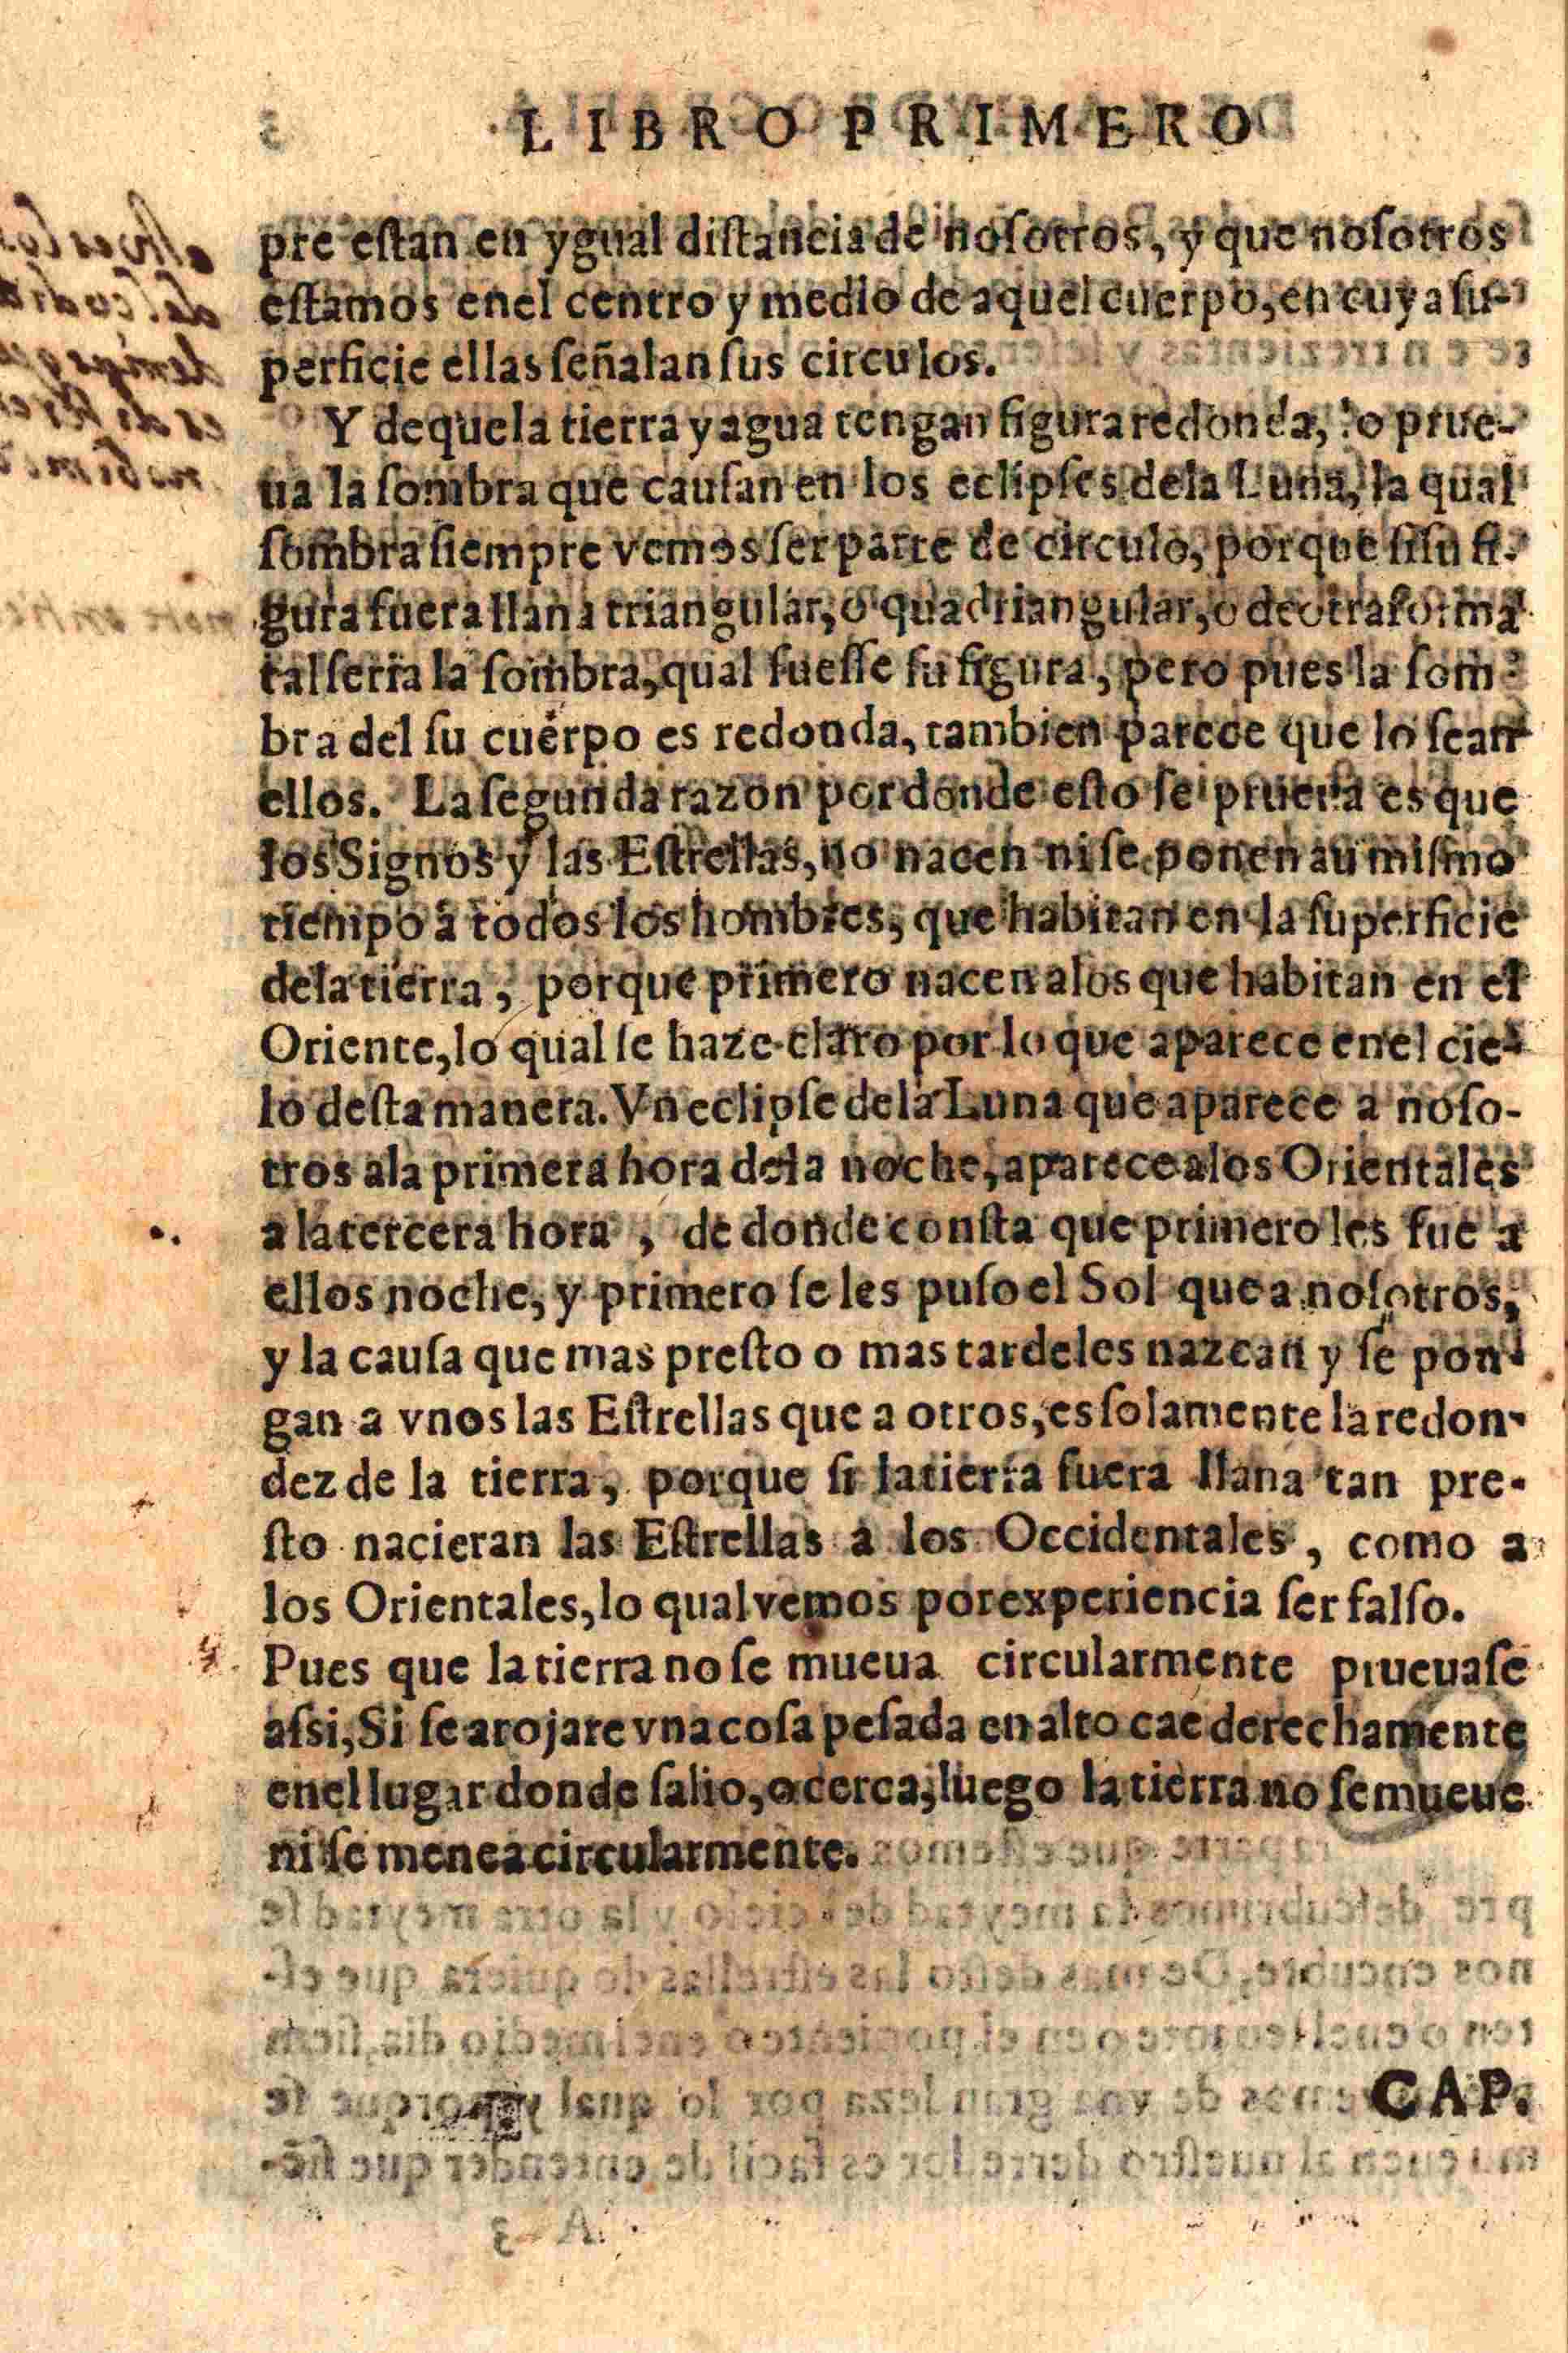 LIBRO PRIMERO
pre eſtan en ygual diſtancia de noſotros, y que noſotros
eſtamos enel centro y medio de aquel cuerpo, en cuya ſu-
perficie ellas ſeñalan ſus circulos.
Y de que la tierra y agua tengan figura redonda, lo prue-
ua la ſombra que cauſan en los eclipſes dela Luna, la qual
ſombra ſiempre vemos ſer parte de circulo, porque ſi ſu fi-
gura fuera llana triangular, o quadriangular, o de otra forma
tal ſeria la ſombra, qual fueſſe ſu figura, pero pues la ſom-
bra del ſu cuerpo es redonda, tambien parece que lo ſean
ellos. La ſegunda razon por donde eſto ſe prueua es que
los Signos y las Eſtrellas, no nacen ni ſe ponen au miſmo
tiempo à todos los hombres, que habitan en la ſuperficie
dela tierra, porque primero nacen alos que habitan en el
Oriente, lo qual ſe haze claro por lo que aparece enel cie-
lo deſta manera. Vn eclipſe dela Luna que aparece a noſo-
tros ala primera hora dela noche, aparece alos Orientales
a la tercera hora, de donde conſta que primero les fue a
ellos noche, y primero ſe les puſo el Sol que a noſotros,
y la cauſa que mas preſto o mas tarde les nazcan y ſe pon-
gan a vnos las Eſtrellas que a otros, es ſolamente la redon-
dez de la tierra, porque ſi la tierra fuera llana tan pre-
ſto nacieran las Eſtrellas à los Occidentales, como a
los Orientales, lo qual vemos por experiencia ſer falſo.
Pues que la tierra no ſe mueua circularmente prueuaſe
aſsi, Si ſe arojare vna coſa peſada en alto cae derechamente
enel lugar donde ſalio, o cerca, luego la tierra no ſe mueue
ni ſe menea circularmente.
CAP.